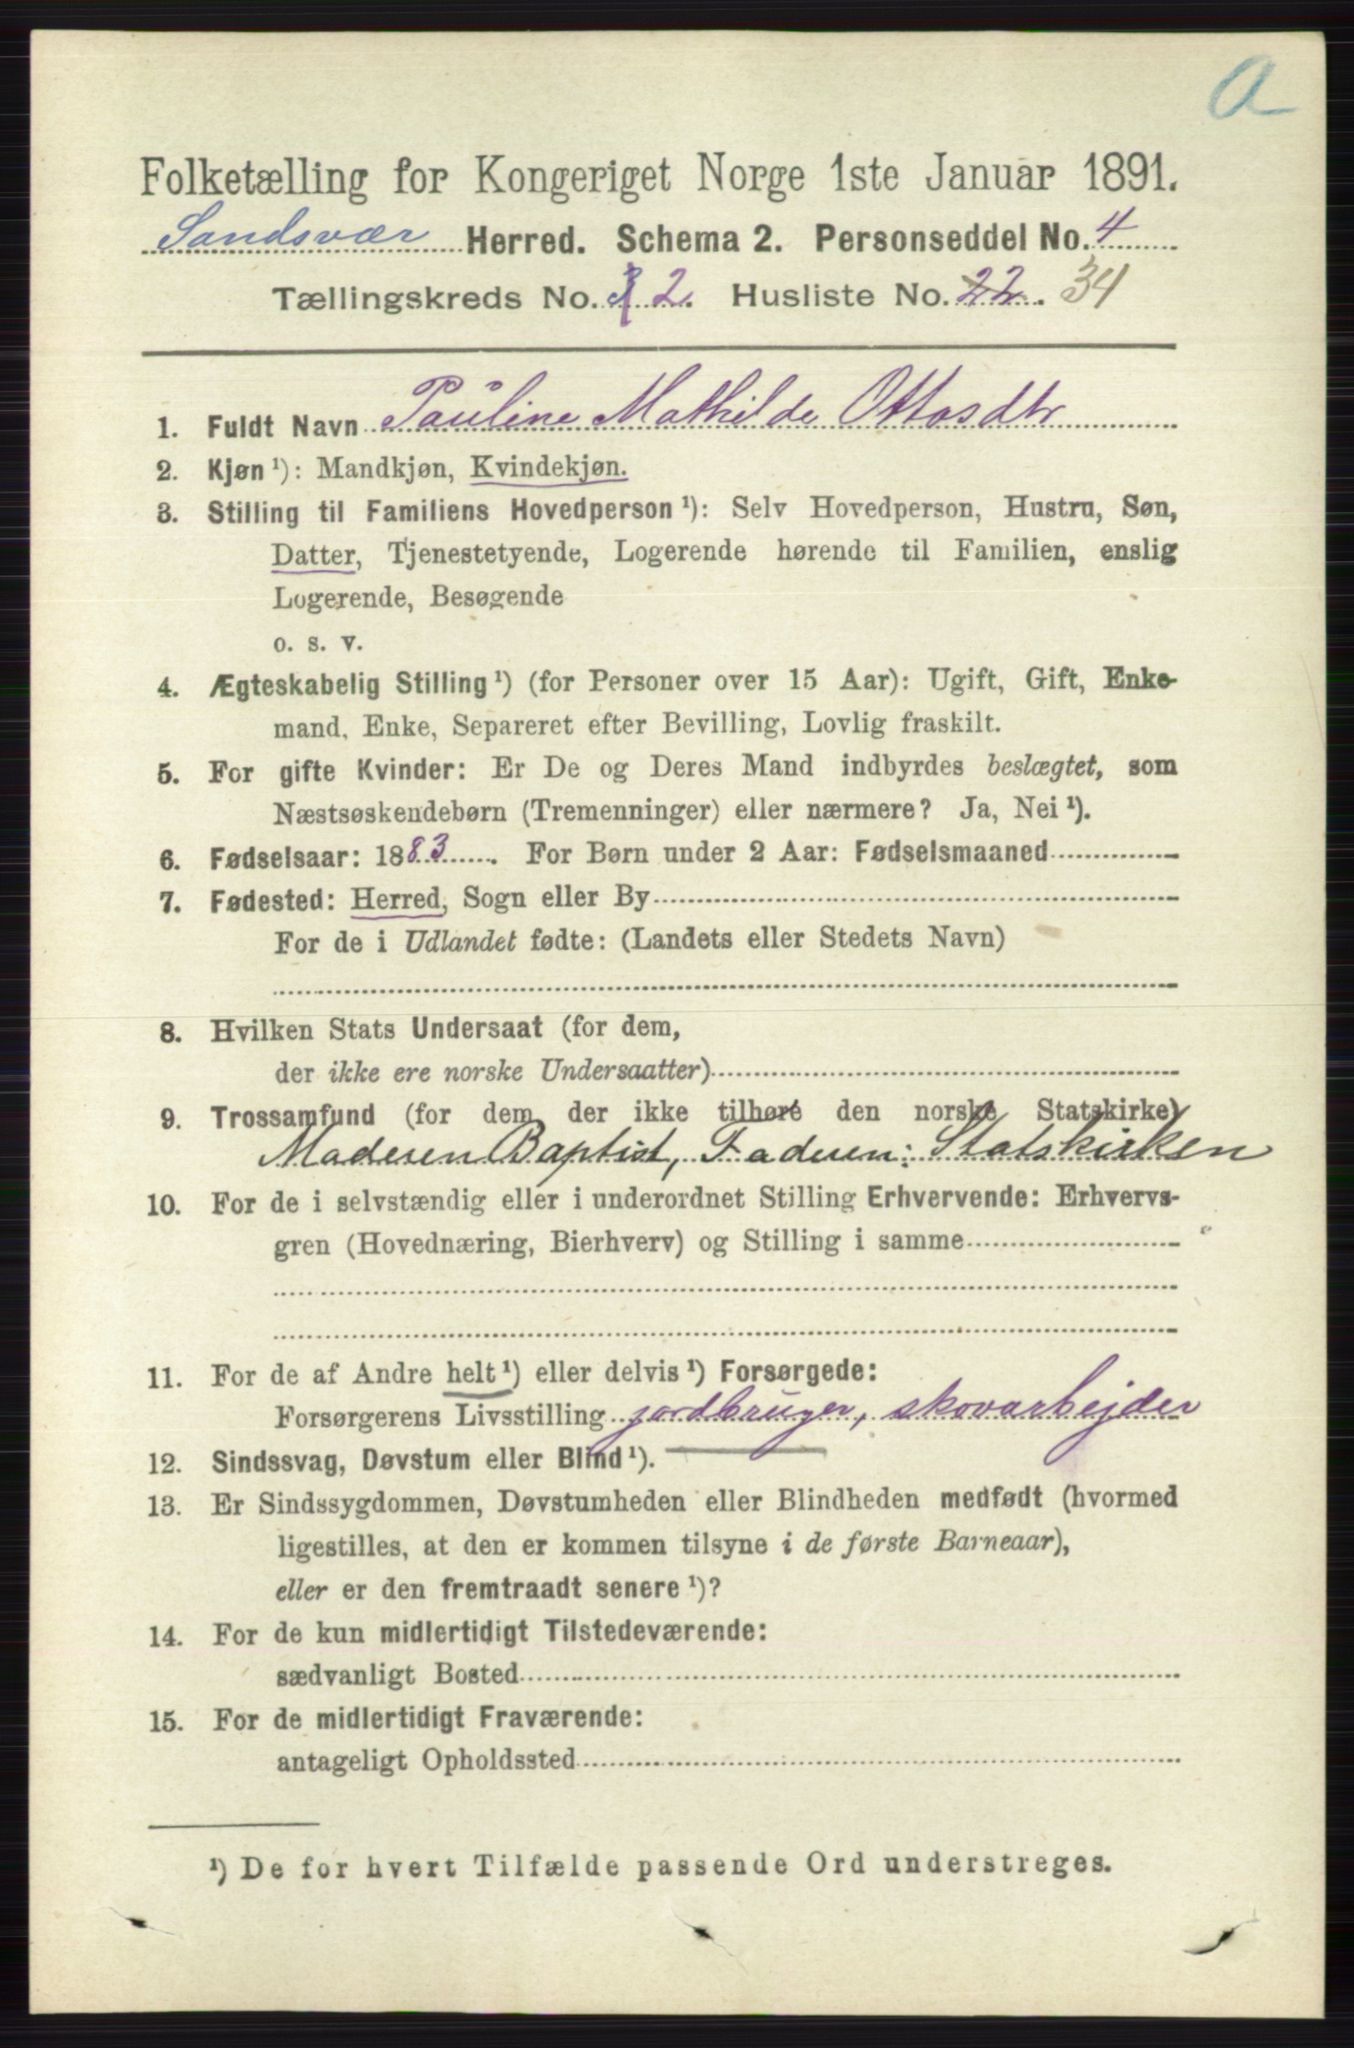 a
Folketælling for Kongeriget Norge 1ste Januar 1891.
Sandsvær Herred. Schema 2. Personseddel No. 4
Tællingskreds No. 3 2. Husliste No. 22. 34
1. Fuldt Navn Pauline Mathilde Ottosdtr
2. Kjøn ¹): Mandkjøn, Kvindekjøn.
3. Stilling til Familiens Hovedperson ¹): Selv Hovedperson, Hustru, Søn,
Datter, Tjenestetyende, Logerende hørende til Familien, enslig
Logerende, Besøgende
o. s. v.
4. Ægteskabelig Stilling ¹) (for Personer over 15 Aar): Ugift, Gift, Enke-
mand, Enke, Separeret efter Bevilling, Lovlig fraskilt.
5. For gifte Kvinder: Er De og Deres Mand indbyrdes beslægtet, som
Næstsøskendebørn (Tremenninger) eller nærmere? Ja, Nei ¹).
6. Fødselsaar: 1883. For Børn under 2 Aar: Fødselsmaaned
7. Fødested: Herred, Sogn eller By
For de i Udlandet fødte: (Landets eller Stedets Navn)
8. Hvilken Stats Undersaat (for dem,
der ikke ere norske Undersaatter)
9. Trossamfund (for dem der ikke tilhøre den norske Statskirke)
Moderen Baptist, Faderen: Statskirken
10. For de i selvstændig eller i underordnet Stilling Erhvervende: Erhvervs-
gren (Hovednæring, Bierhverv) og Stilling i samme
11. For de af Andre helt ¹) eller delvis ¹) Forsørgede:
Forsørgerens Livsstilling jordbruger, skovarbejder
12. Sindssvag, Døvstum eller Blind ¹).
13. Er Sindssygdommen, Døvstumheden eller Blindheden medfødt (hvormed
ligestilles, at den er kommen tilsyne i de første Barneaar),
eller er den fremtraadt senere ¹)?
14. For de kun midlertidigt Tilstedeværende:
sædvanligt Bosted
15. For de midlertidigt Fraværende:
antageligt Opholdssted
¹) De for hvert Tilfælde passende Ord understreges.